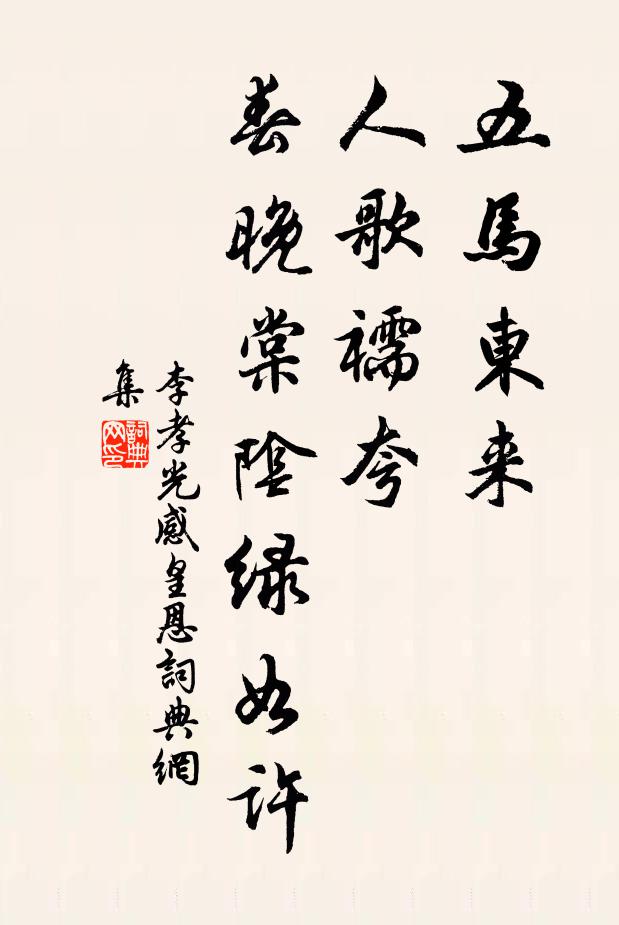 五馬東来
人歌襦夸
春晚棠陰綠如許
李孝光感皇恩詞典網
集
詞典
网印